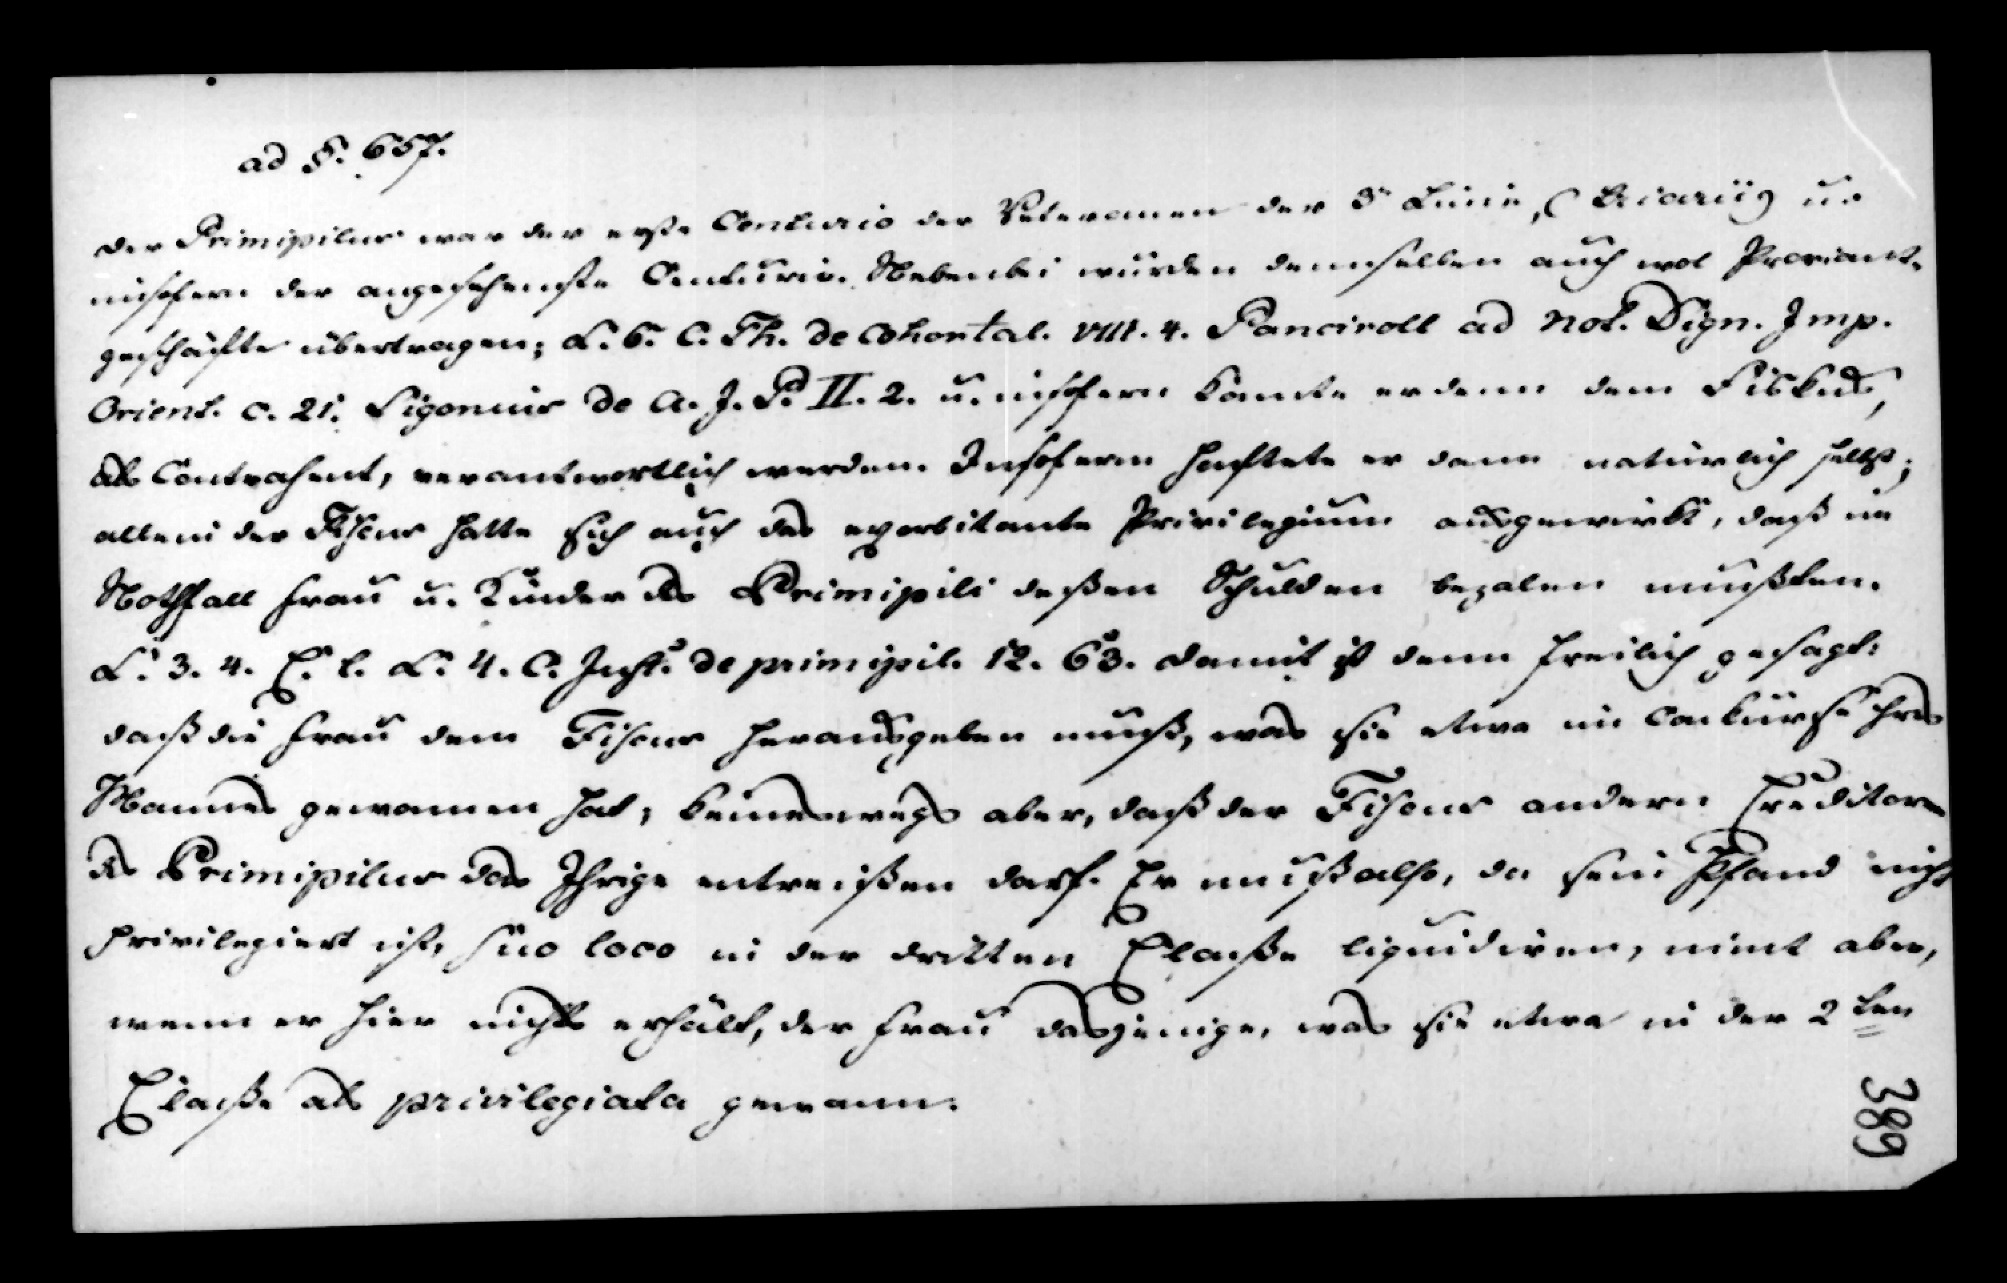 ad §. 657.
Der Primipilus war der erste Centurio der Veteranen der 3n Linie, (triarii) u.
insofern der angesehenste Centurio. Nebenbei wurden demselben auch wol Proviant-
geschäfte übertragen; L. 6. C. Th. de cohortal. VIII. 4. Panciroll ad Not. Dign. Imp.
Orient. c. 21. Sigonius de A. J. P. II. 2. u. insofern konnte er denn dem Fiskus,
als Contrahent, verantwortlich werden. Insofern haftete er denn natürlich selbst;
allein der Fiscus hatte sich auch das exorbitante Privilegium ausgewirkt, daß im
Nothfall Frau u. Kinder des Primipili deßen Schulden bezalen mußten.
L. 3. 4. C. t. L. 4. C. Just. de primipil. 12. 63. Damit ist denn freilich gesagt:
daß die Frau dem Fiscus herausgeben muß, was sie etwa im Conkurse ihres
Mannes gewonnen hat; keineswegs aber, daß der Fiscus andern Creditoren
des Primipilus das Ihrige entreißen darf. Er muß also, da sein Pfand nicht
privilegiert ist, suo loco in der dritten Claße liquidiren, nimt aber,
wenn er hier nichts erhält, der Frau dasjenige, was sie etwa in der 2ten
Claße als privilegiata gewann.
389